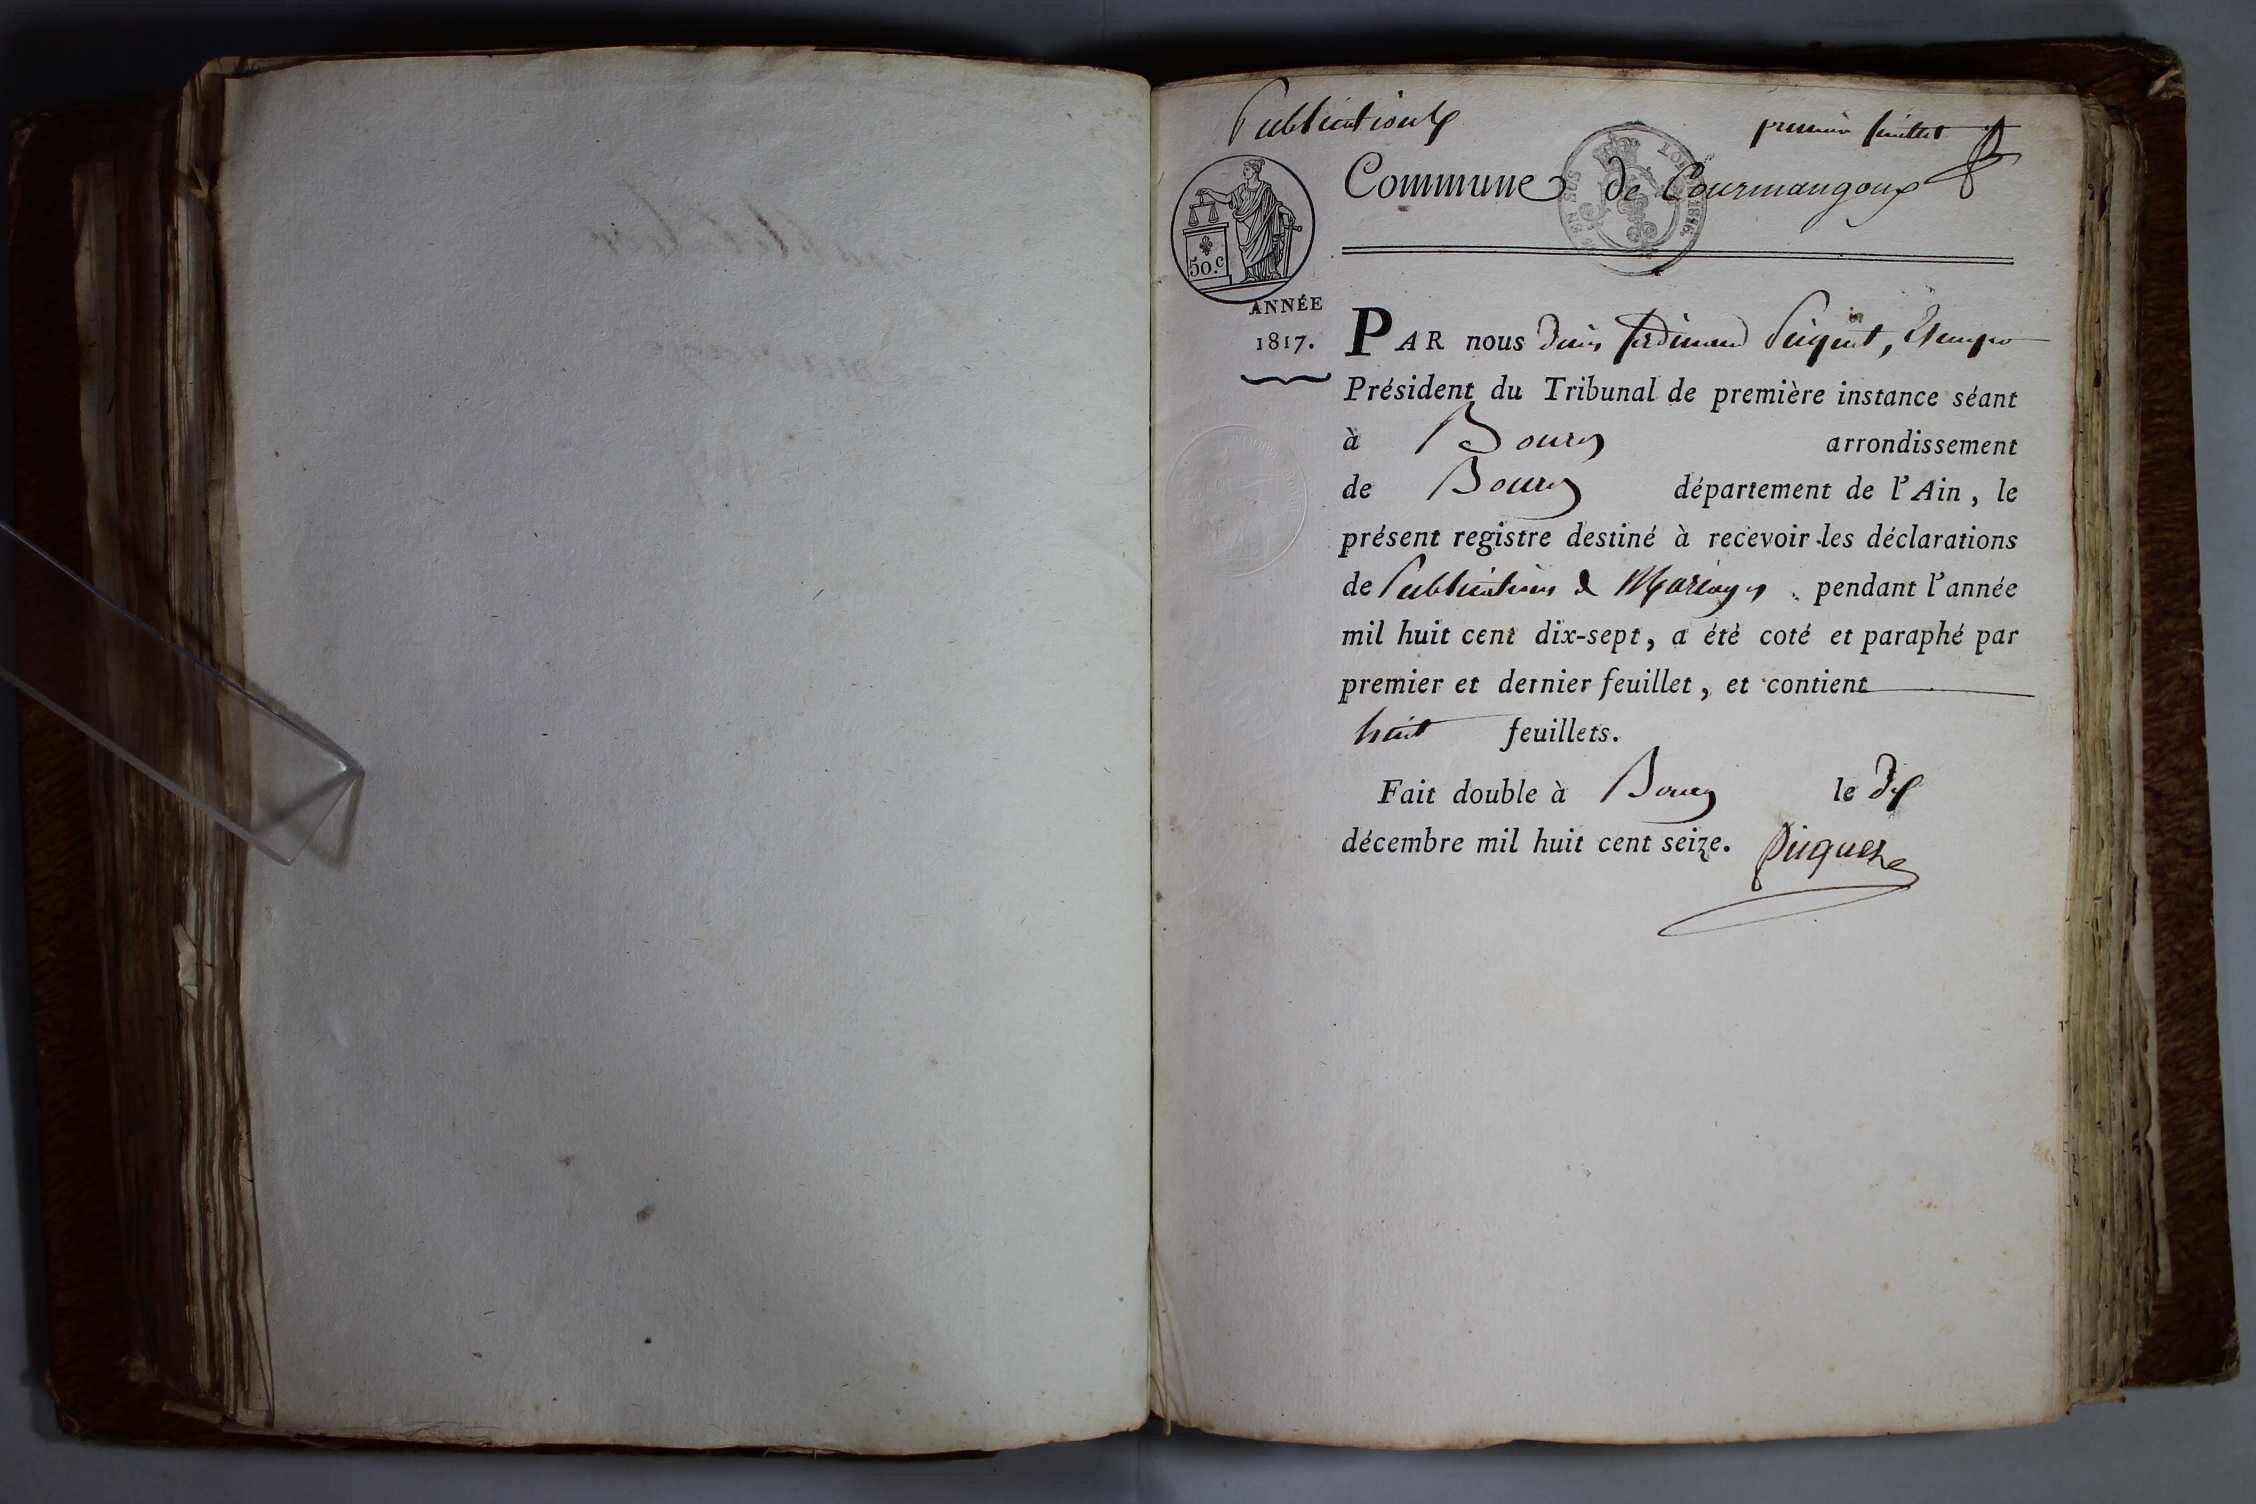 Publications
premier feuillet
Commune de Courmangoux
LOI 1816.
EN SUS
50.c
ANNÉE
1817.
PAR nous Denis ferdinand Piquet,
Président du Tribunal de première instance séant
à Bourg arrondissement
de Bourg département de l'Ain, le
présent registre destiné à recevoir les déclarations
de Publications de Mariages pendant l'année
mil huit cent dix-sept, a été coté et paraphé par
premier et dernier feuillet, et contient
huit feuillets.
Fait double à Bourg le
décembre mil huit cent seize. Piquet